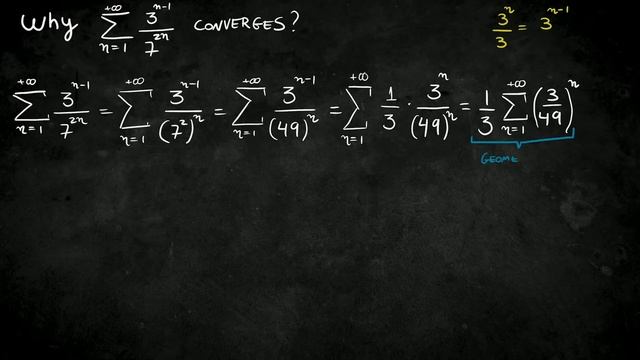 Why \sum_{n=1}^{+\infty} \frac{3^{n-1}}{7^{2n}} CONVERGES?
\frac{3^n}{3} = 3^{n-1}
\sum_{n=1}^{+\infty} \frac{3^{n-1}}{7^{2n}} = \sum_{n=1}^{+\infty} \frac{3^{n-1}}{(7^2)^n} = \sum_{n=1}^{+\infty} \frac{3^{n-1}}{(49)^n} = \sum_{n=1}^{+\infty} \frac{1}{3} \cdot \frac{3^n}{(49)^n} = \frac{1}{3} \sum_{n=1}^{+\infty} \left(\frac{3}{49}\right)^n
GEOME